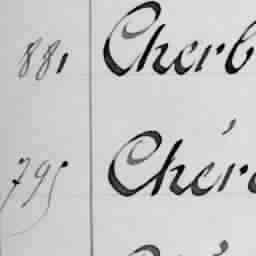 881 Cherb
795 Chér